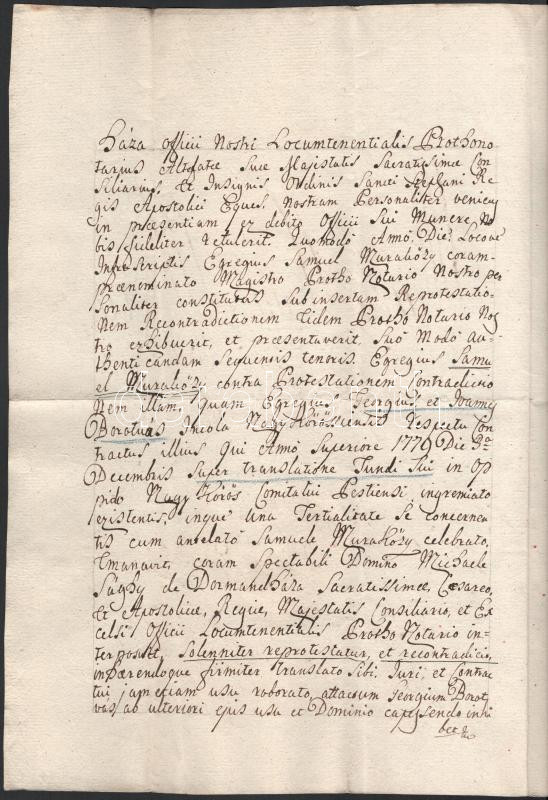 háza Officii Nostri Locumtenentialis Prothono
tarius Altefatae Suae Majestatis Sacratissimae Con
siliarius, et Insignis Ordinis Sancti Stephani Re
gis Apostolici Eques, Nostram Personaliter veniens
in praesentiam, ex debito Officii Sui Munere No
bis fideliter retulerit. Quomodo Anno, Die, Locove
Infrascriptis Egregius Samuel Muraközy coram
praenominato Magistro Protho Notario Nostro per
sonaliter constitutus Subinsertam Reprotestatio
nem Recontradictionem eidem Protho Notario Nos
tro exhibuerit, et praesentaverit, Suo Modo au
thenticandam Sequentis tenoris. Egregius Samu
el Muraközy contra Protestationem Contradictio
nem illam, quam Egregius Georgius, et Joannes
Borotvas Incola Nagy Körössiensis respectu Con
tractus illius qui Anno Superiore 1779 Die 3a
Decembris Super translatione Fundi Sui in Op
pido Nagy Körös Comitatui Pestiensi ingremiato
existentis, inque una Tertialitate se concernen
tis cum antelato Samuele Muraközy celebrato,
Emanavit, coram Spectabili Domino Michaele
Sághy de Dormandháza Sacratissimae, Caesareo,
Et Apostolicae, Regiae, Majestatis Consiliario, et Ex
celsi Officii Locumtenentialis Protho Notario in
terposuit, Solenniter reprotestatur, et recontradicit,
inhaerendoque firmiter translato Sibi Juri, et Contrac
tui jam etiam usu roborato, attactum Georgium Borot
vas ab ulteriori ejus usu et Dominio capessendo inhi
bet